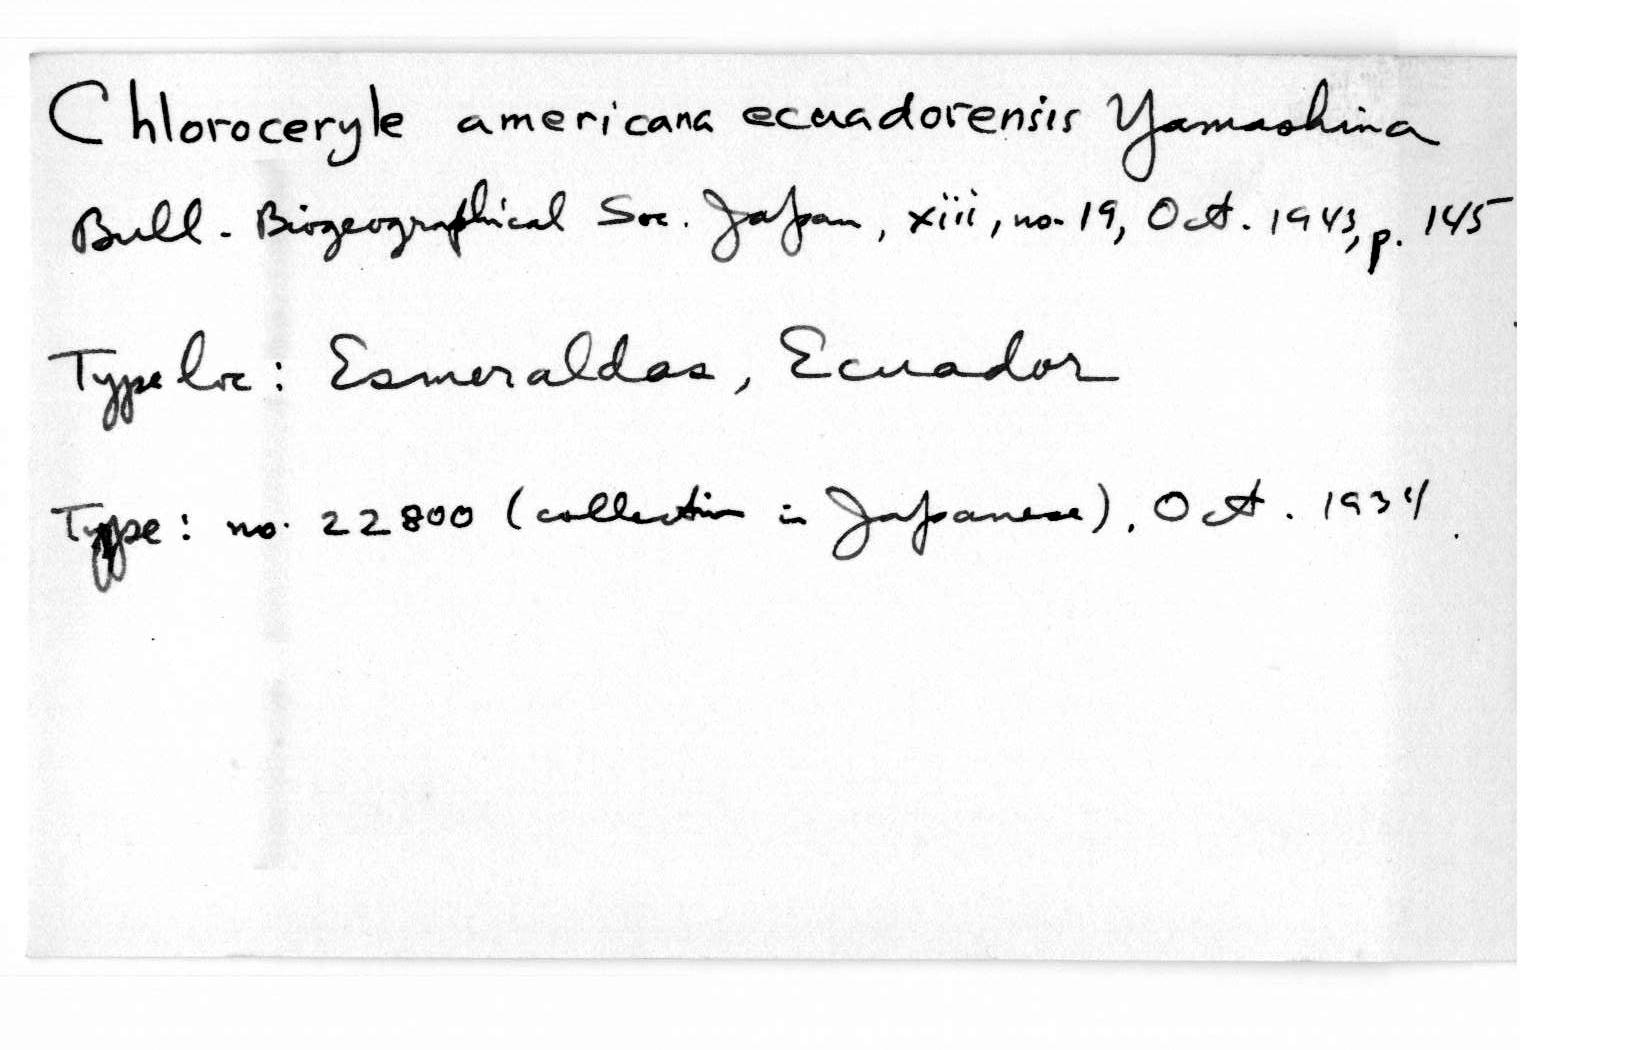 Chloroceryle americana ecuadorensis Yamashina
Bull. Biogeographical Soc. Japan, xiii, no. 19, Oct. 1943, p. 145
Type loc: Esmeraldas, Ecuador
Type: no. 22800 (collection in Japanese), Oct. 1934.